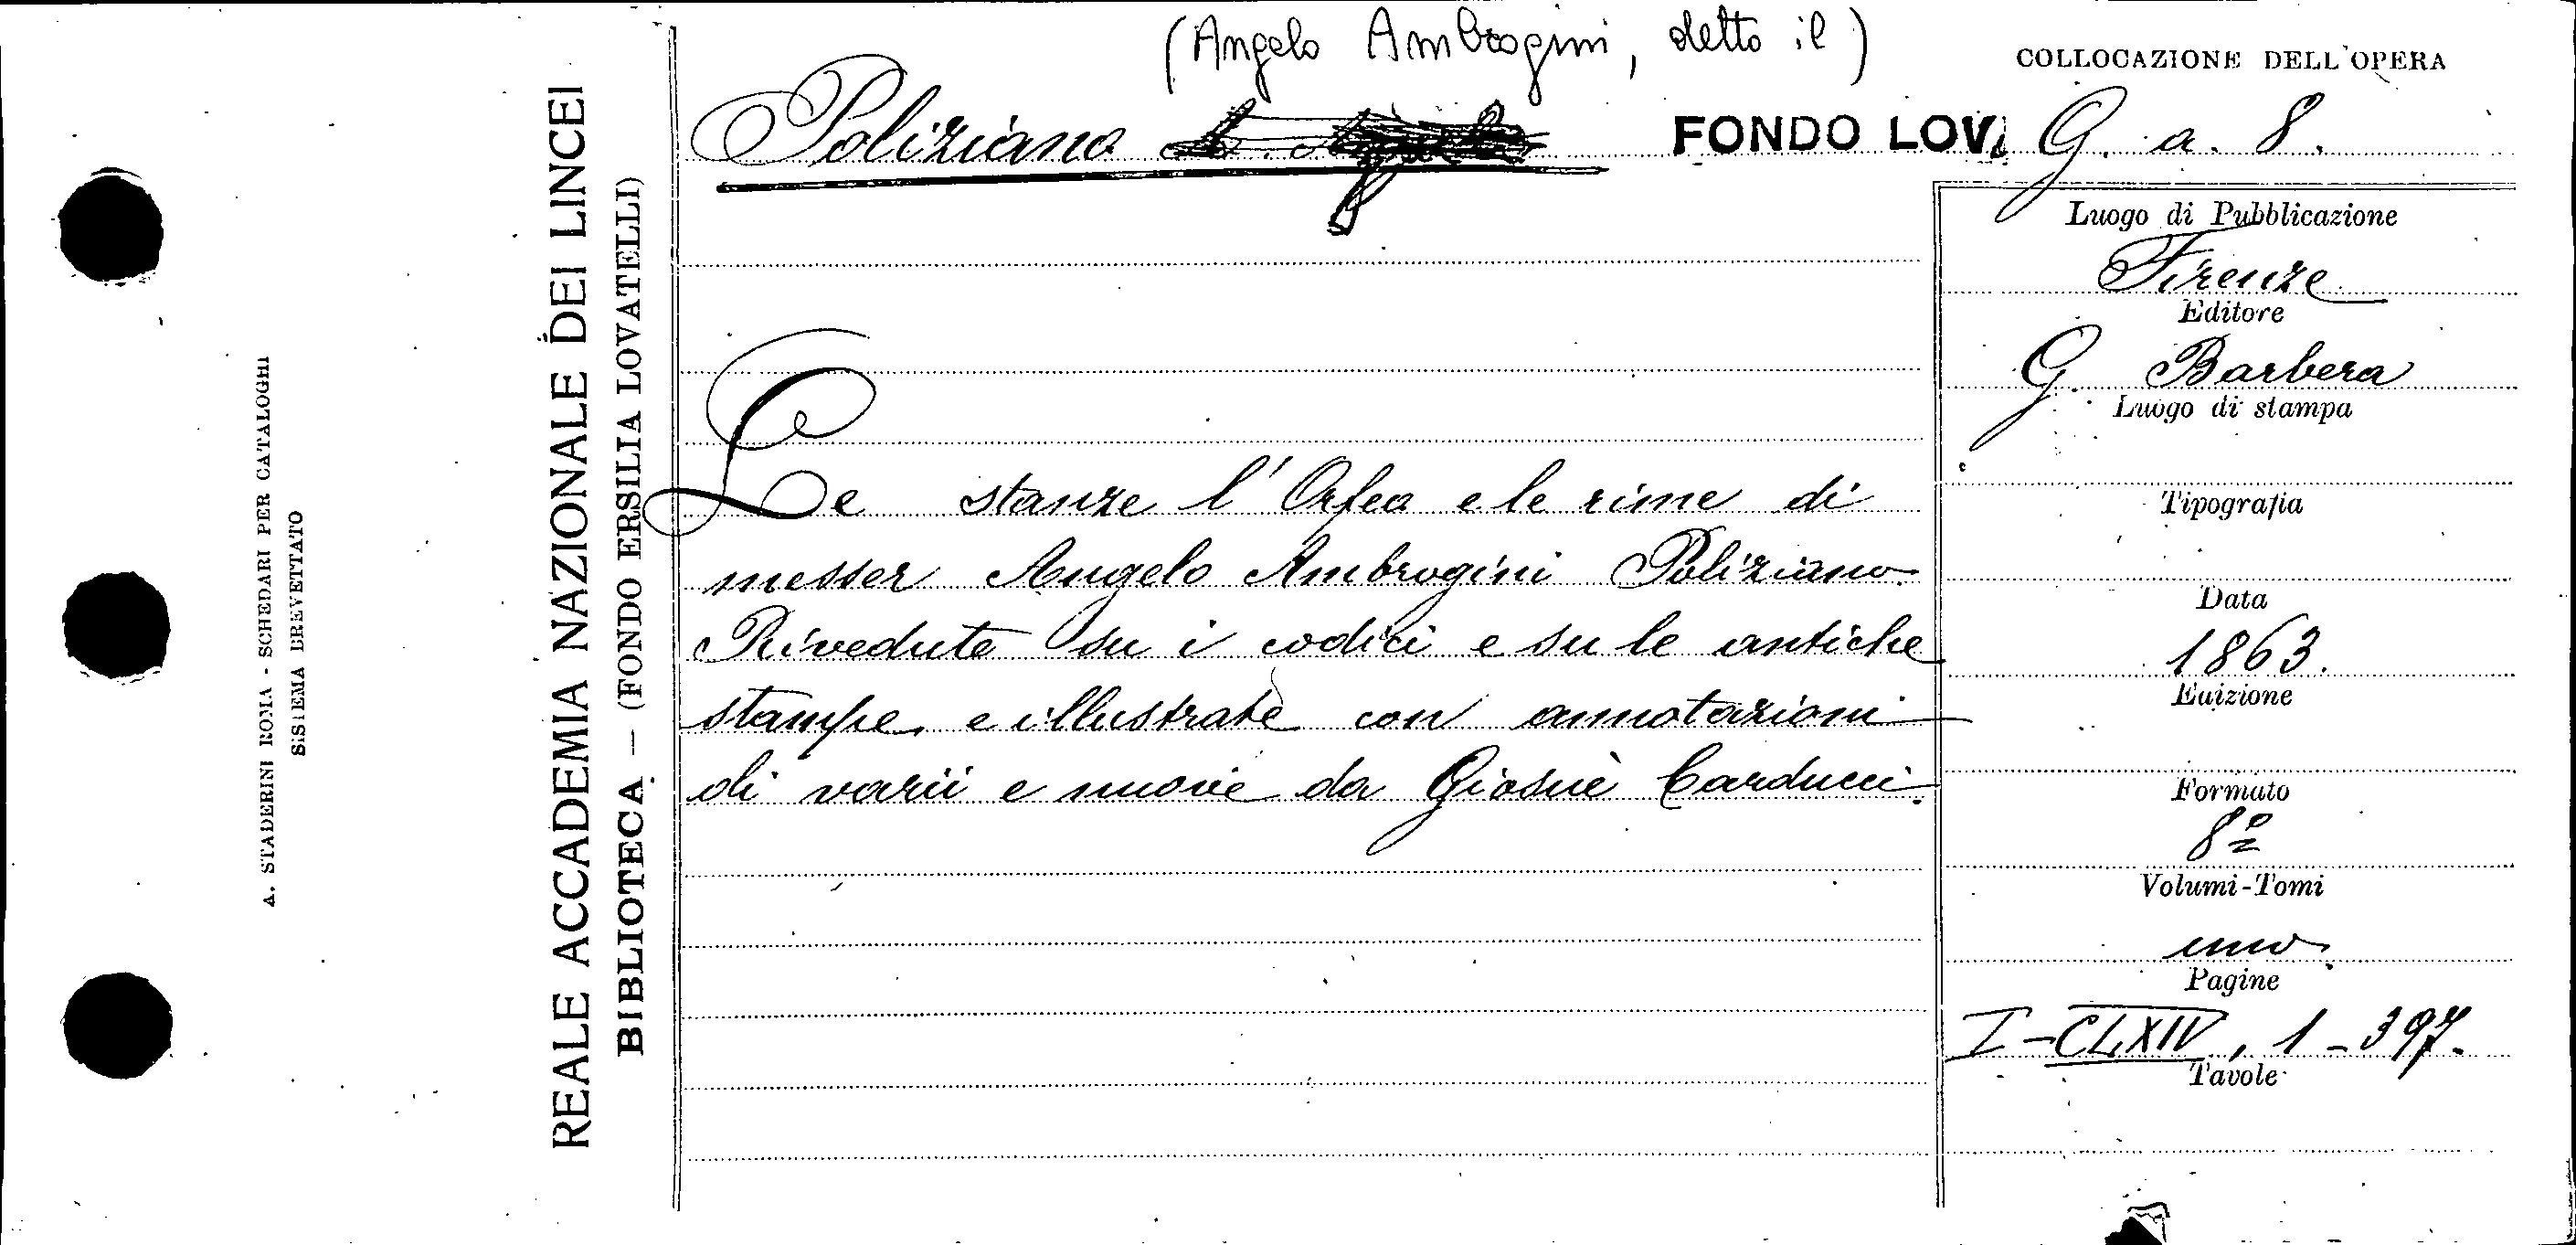 (Angelo Ambrogini, detto il)
COLLOCAZIONE DELL'OPERA
Poliziano
FONDO LOV. G. a. 8.
A. STADERINI ROMA - SCHEDARI PER CATALOGHI
SISTEMA BREVETTATO
REALE ACCADEMIA NAZIONALE DEI LINCEI
BIBLIOTECA — (FONDO ERSILIA LOVATELLI)
Le stanze l'Orfeo e le rime di
messer Angelo Ambrogini Poliziano.
Rivedute su i codici e su le antiche
stampe e illustrate con annotazioni
di varii e nuove da Giosuè Carducci.
Luogo di Pubblicazione
Firenze
Editore
G. Barbera
Luogo di stampa
Tipografia
Data
1863.
Edizione
Formato
8º
Volumi-Tomi
uno
Pagine
I-CLXIV, 1-397.
Tavole